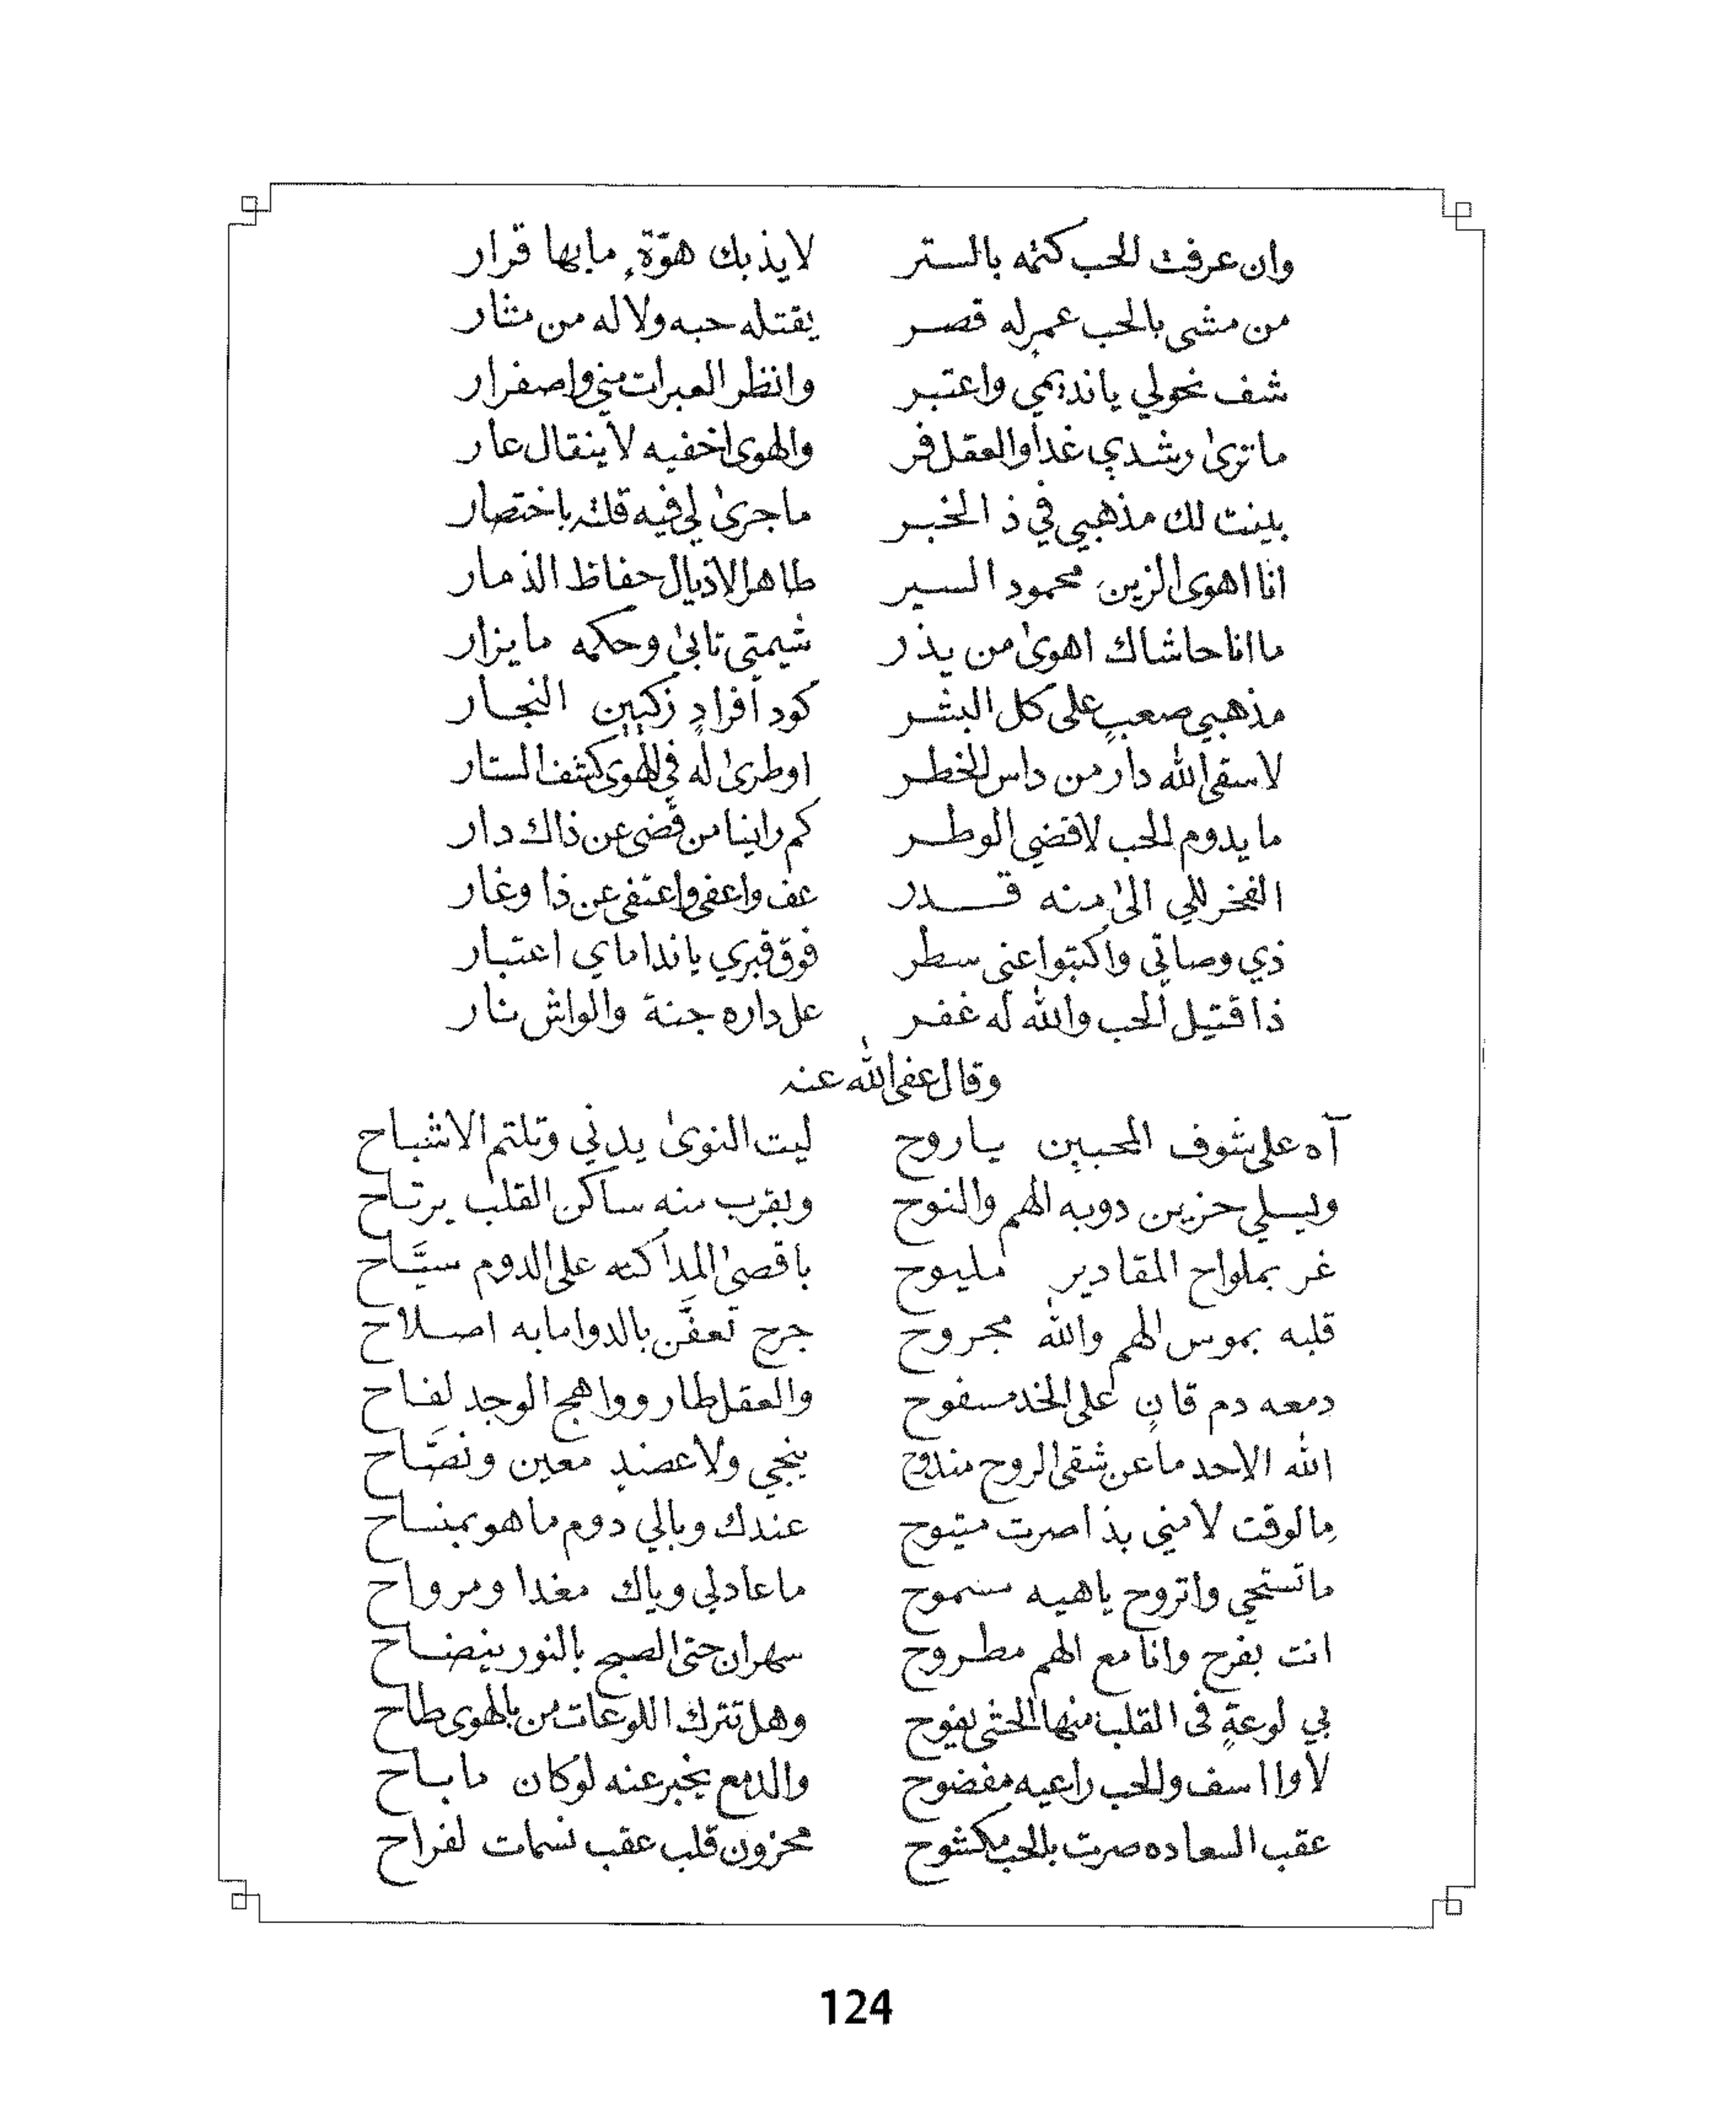 وان عرفت الحب كتمه بالستر لايذبك هوّةٍ مابها قرار
من مشى بالحب عمرٍ له قصر يقتله حبه ولاله من مثار
شف نحولي يانديمي واعتبر وانظر العبرات مني واصفرار
ماترىٰ رشدي غدا والعقل فر والهوى اخفيه لاينقال عار
بينت لك مذهبي في ذا الخبر ماجرىٰ لي فيه قلته باختصار
انا اهوى الزين محمود السير طاهر الاذيال حفاظ الذمار
ماانا حاشاك اهوىٰ من يذر شيمتي تابىٰ وحكمه مايزار
مذهبي صعبٍ على كل البشر كود أفرادٍ زكيين النجار
لاسقى الله دار من داس الخطر اوطرىٰ له في الهوى كشف الستار
مايدوم الحب لاقضي الوطر كم راينا من قضى عن ذاك دار
الفخر للي الىٰ منه قدر عف واعفى واعتفى عن ذا وغار
ذي وصاتي واكتبوا عني سطر فوق قبري ياندامای اعتبار
ذا قتيل الحب والله له غفر عل داره جنة والواش نار
وقال عفى الله عنه
آه على شوف المحبين ياروح ليت النوىٰ يدني وتلتم الاشباح
ويسلي حزين دوبه الهم والنوح ويقرب منه ساكن القلب يرتاح
غر بملواح المقادير مليوح باقصىٰ المدا كنه على الدوم سيَّاح
قلبه بموس الهم والله مجروح جرح تعفَّن بالدوا مابه اصلاح
دمعه دم قانٍ على الخد مسفوح والعقل طار وواهج الوجد لفاح
الله الاحد ما عن شقى الروح مندوح ينجي ولاعضيد معين ونصَّاح
مالوقت لامني بذا صرت متيوح عندك وبالي دوم ماهو بمنساح
ماتستحي واتروح ياهيه مسموح ماعادلي وياك مغدا ومرواح
انت بفرح وانا مع الهم مطروح سهران حتى الصبح بالنور ينضاح
بي لوعةٍ في القلب منها الحشى يفوح وهل تترك اللوعات من بالهوى طاح
لاوا اسف والحب راعيه مفضوح والدمع يخبر عنه لوكان ماباح
عقب السعاده صرت بالحب مكشوح محزون قلب عقب نسمات لفراح
124